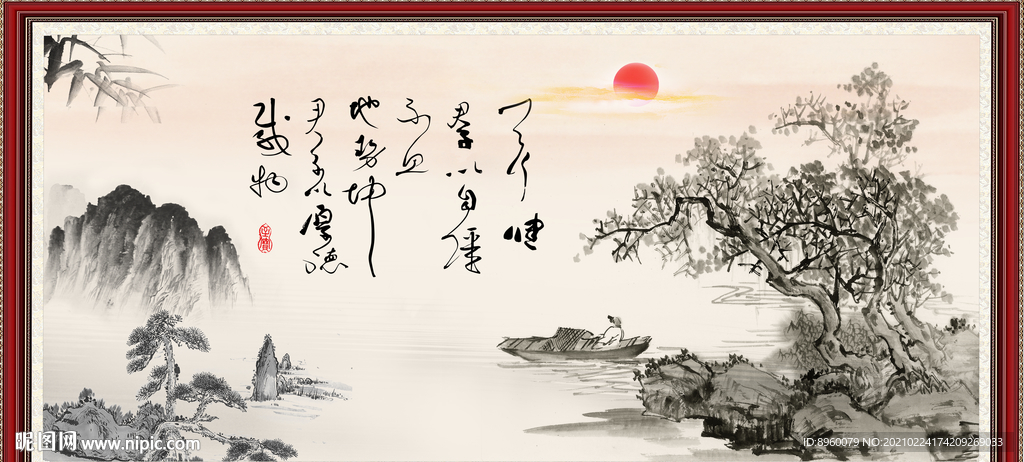 天行健
君子以自强
不息
地势坤
君子以厚德
载物
昵图网 www.nipic.com
ID:8960079 NO:20210224174209269033